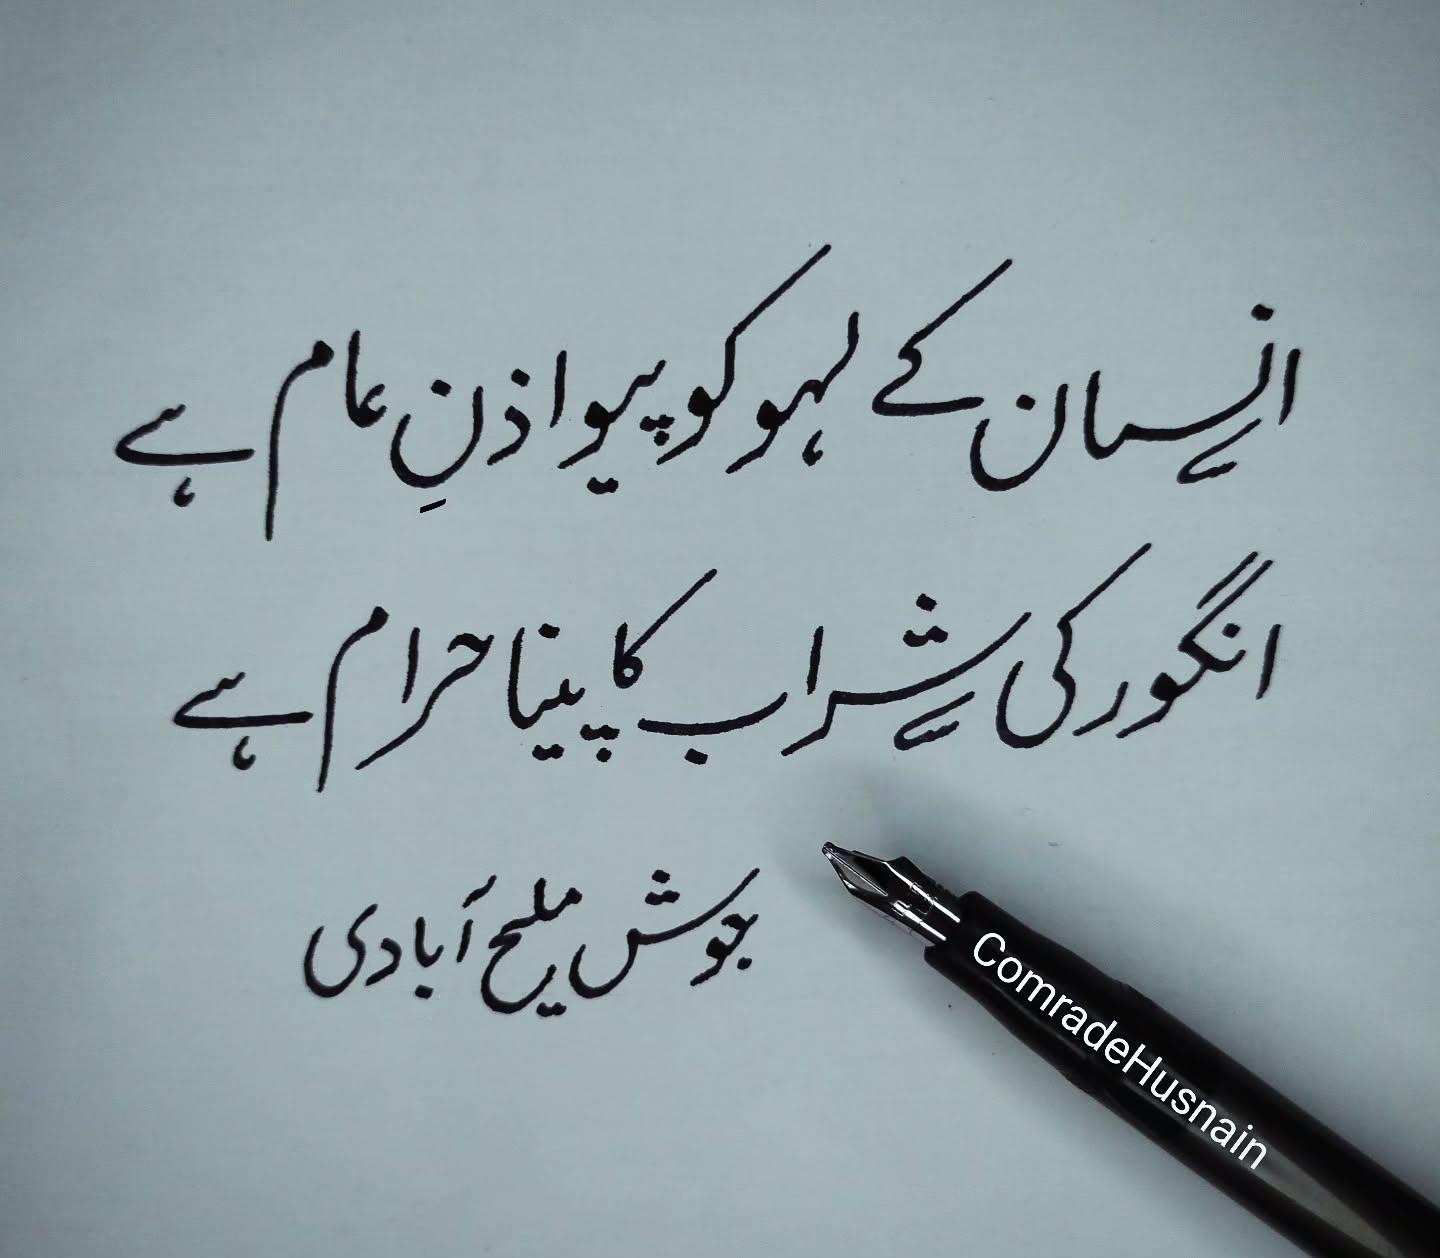 انسان کے لہو کو پیو اذنِ عام ہے
انگور کی شراب کا پینا حرام ہے
جوش ملیح آبادی
ComradeHusnain